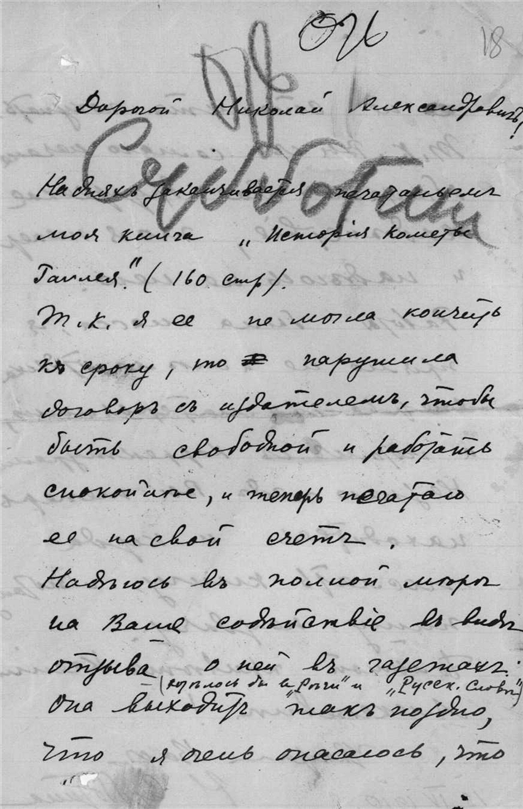 ОЧ
18
Дорогой Николай Александровичъ!
На дняхъ заканчивается печатаньемъ
моя книга „Исторія Кометы
Галлея." (160 стр).
Т.к. я ее не могла кончить
къ сроку, то нарушила
договоръ съ издателемъ, чтобы
быть свободной и работать
спокойнѣе, и теперь печатаю
ее на свой счетъ.
Надѣюсь въ полной мѣрѣ
на Ваше содѣйствіе въ видѣ
отзыва о ней въ газетахъ.
(хотѣлось бы въ „Рѣчи" и „Русск. Словѣ")
Она выходитъ такъ поздно,
что я очень опасаюсь, что